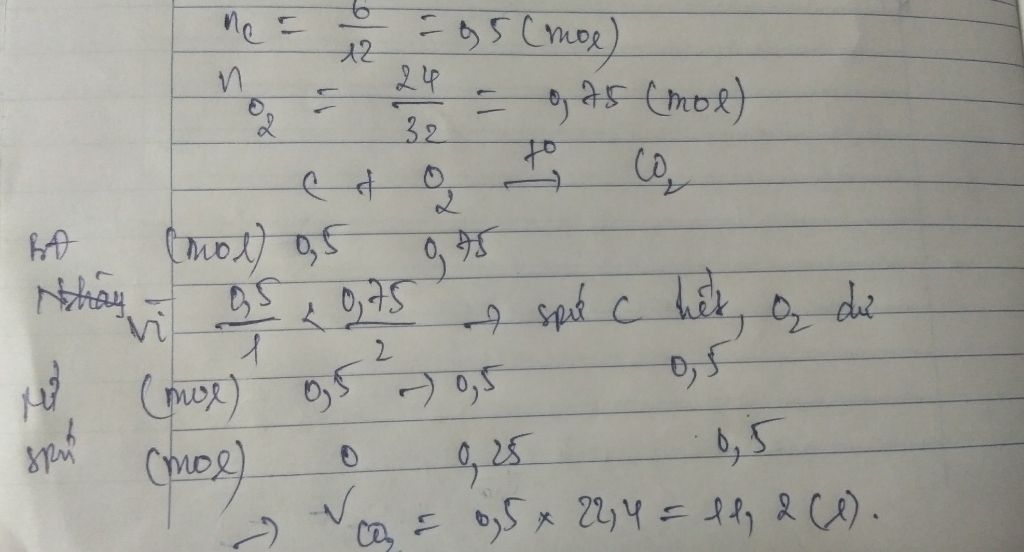 n_C = 6/12 = 0,5 (mol)
n_O₂ = 24/32 = 0,75 (mol)
C + O₂ →(t°) CO₂
BĐ (mol) 0,5 0,75
Vì 0,5/1 < 0,75/2 → spứ C hết, O₂ dư
PƯ (mol) 0,5 → 0,5 0,5
spứ (mol) 0 0,25 0,5
→ V_CO₂ = 0,5 × 22,4 = 11,2 (l).